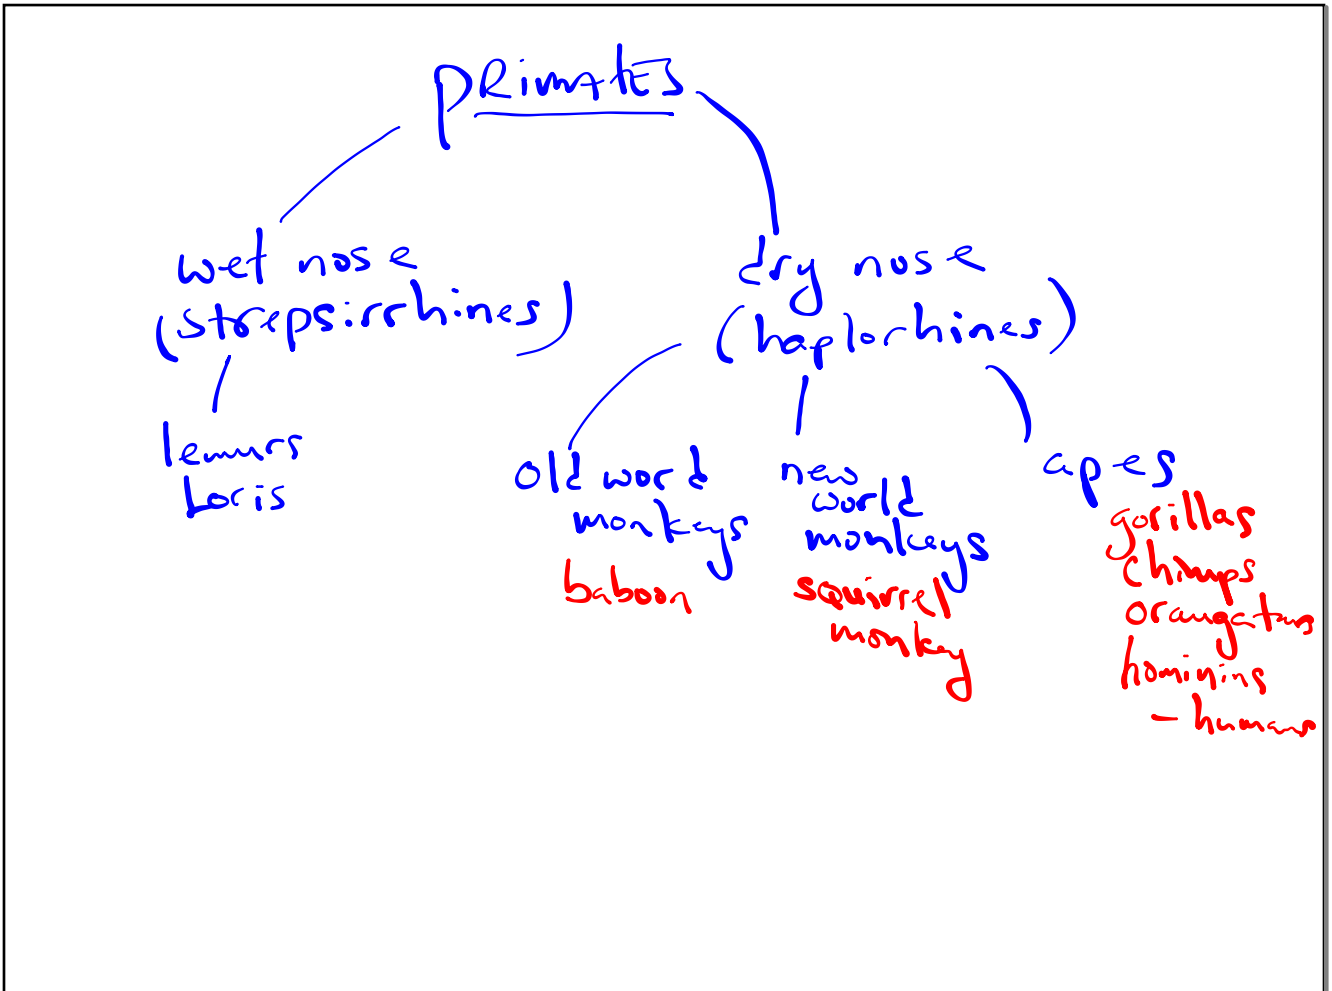 PRimatES
wet nose
(strepsirrhines)
dry nose
(haplorhines)
lemurs
Loris
old word
monkeys
baboon
new
world
monkeys
squirrel
monkey
apes
gorillas
chimps
orangatans
hominins
– humans